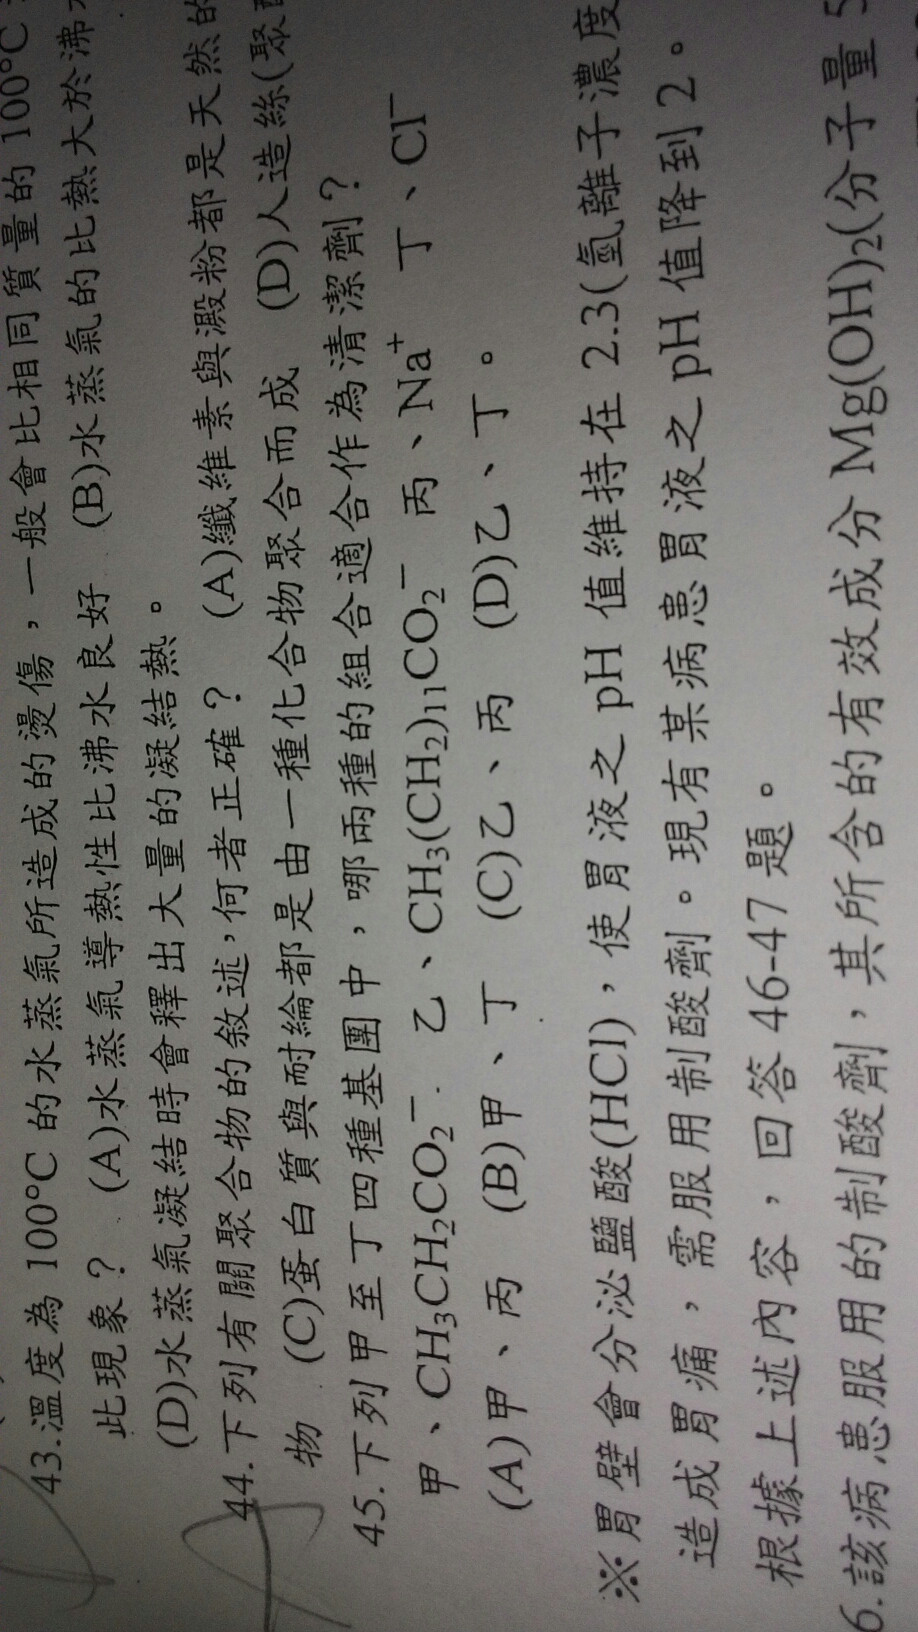 43.溫度為 100°C 的水蒸氣所造成的燙傷，一般會比相同質量的 100°C
此現象？ (A)水蒸氣導熱性比沸水良好 (B)水蒸氣的比熱大於沸
(D)水蒸氣凝結時會釋出大量的凝結熱。
44.下列有關聚合物的敘述，何者正確？ (A)纖維素與澱粉都是天然的
物 (C)蛋白質與耐綸都是由一種化合物聚合而成 (D)人造絲(聚
45.下列甲至丁四種基團中，哪兩種的組合適合作為清潔劑？
甲、CH₃CH₂CO₂⁻ 乙、CH₃(CH₂)₁₁CO₂⁻ 丙、Na⁺ 丁、Cl⁻
(A)甲、丙 (B)甲、丁 (C)乙、丙 (D)乙、丁。
※胃壁會分泌鹽酸(HCl)，使胃液之 pH 值維持在 2.3(氫離子濃度
造成胃痛，需服用制酸劑。現有某病患胃液之 pH 值降到 2。
根據上述內容，回答 46-47 題。
6.該病患服用的制酸劑，其所含的有效成分 Mg(OH)₂(分子量 5